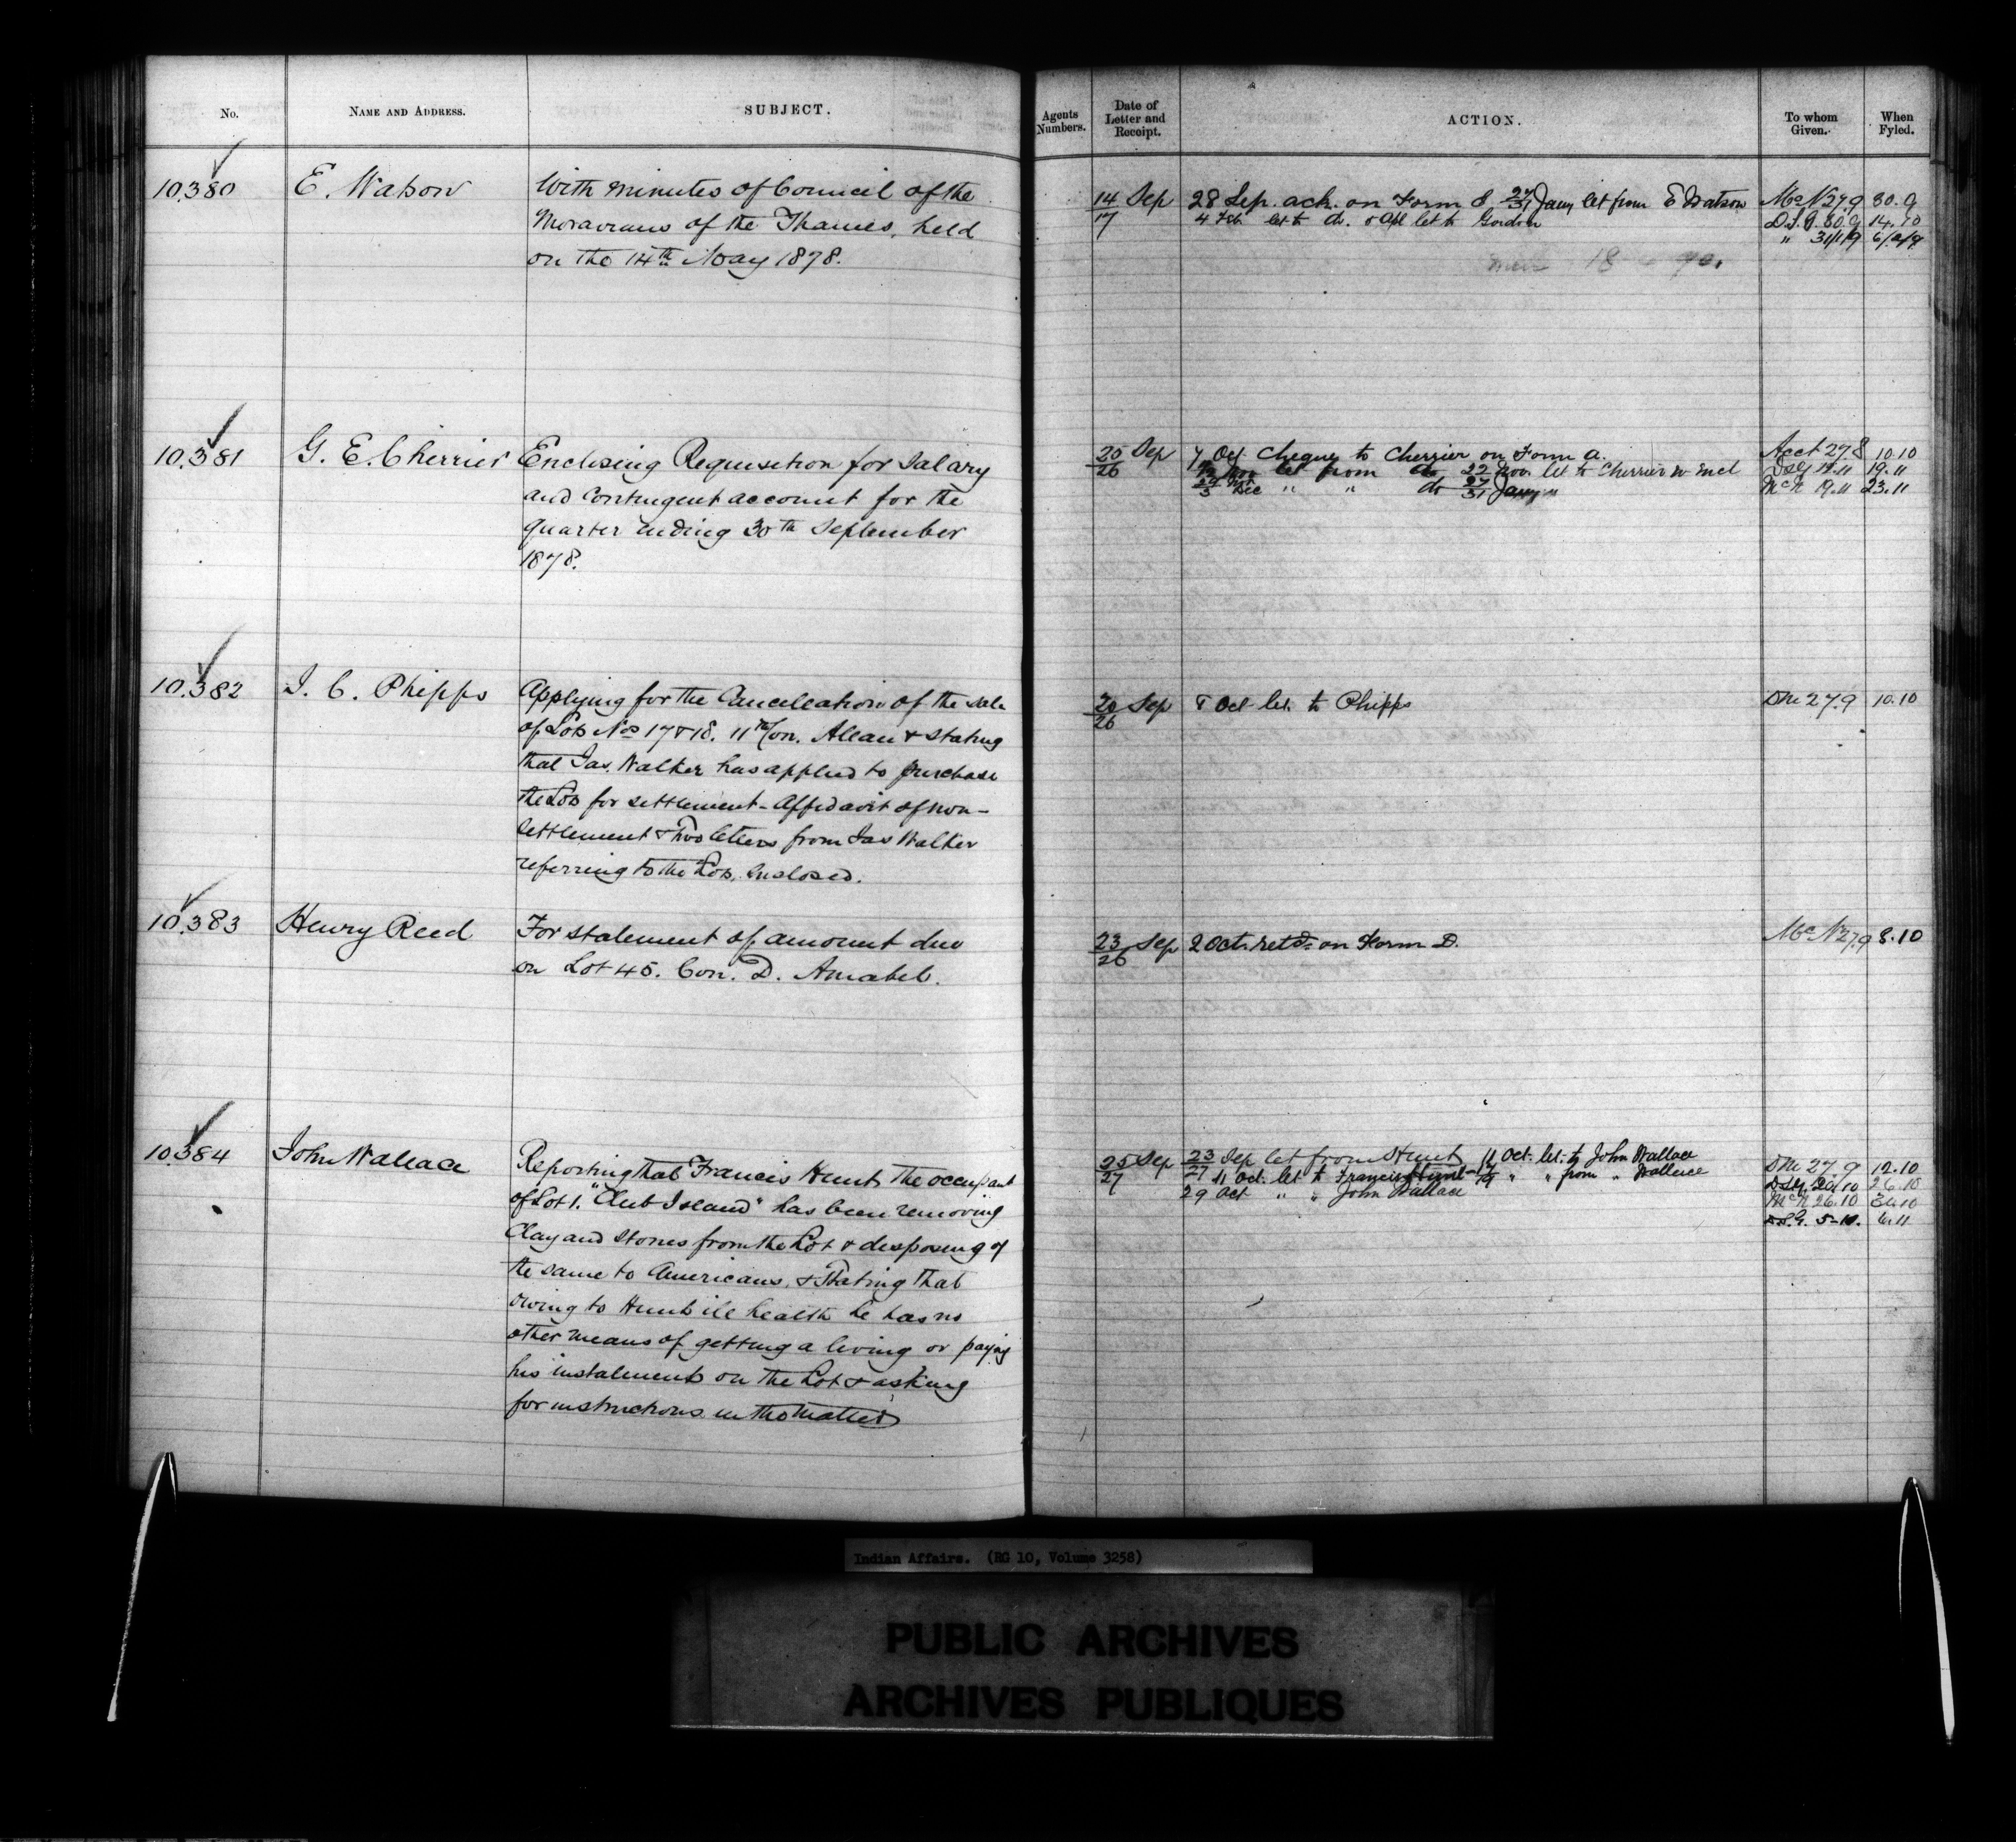 No.
NAME AND ADDRESS.
SUBJECT.
Agents Numbers.
Date of Letter and Receipt.
ACTION.
To whom Given.
When Fyled.
10.380
E. Watson
With minutes of Council of the
Moravians of the Thames, held
on the 14th May 1878.
14 Sep
17
28 Sep. ack. on Form 8 27/31 Jany let from E Watson
4 Feb let to do. 8 Apl let to Gordon
McN 27.9 30.9
D.S.G. 30.9 14.10
" 31/1/9 6/2/9
10.381
G. E. Cherrier
Enclosing Requisition for Salary
and Contingent account for the
quarter ending 30th September
1878.
25 Sep
26
7 Oct. Cheque to Cherrier on Form A.
Nov let from do 22 Nov. let to Cherrier w Encl
Dec " " do 27/31 Jany "
Acct 27.8 10.10
DSG 19.11 19.11
McN 19.11 23.11
10.382
J. C. Phipps
Applying for the Cancellation of the sale
of Lots Nos 17 & 18. 11th Con. Allan & stating
that Jas. Walker has applied to purchase
the Lots for settlement - Affidavit of non-
settlement & two letters from Jas Walker
referring to the Lots, enclosed.
20 Sep
26
8 Oct let. to Phipps
27.9 10.10
10.383
Henry Reed
For statement of amount due
on Lot 45. Con. D. Amabel.
23 Sep
26
2 Oct. retd. on Form D.
McN 27.9 3.10
10.384
John Wallace
Reporting that Francis Hunt, the occupant
of Lot 1. "Club Island" has been removing
Clay and stones from the Lot & disposing of
the same to Americans, & stating that
owing to Hunts ill health he has no
other means of getting a living or paying
his instalments on the Lot & asking
for instructions in the matter
25 Sep
27
23/27 Sep let from Hunt 11 Oct. let. to John Wallace
11 Oct. let to Francis Hunt " " from " Wallace
29 Oct " " John Wallace
27.9 12.10
DSG. 20.10 26.10
McN 26.10 30.10
D.S.G. 5-11. 6.11
Indian Affairs. (RG 10, Volume 3258)
PUBLIC ARCHIVES
ARCHIVES PUBLIQUES